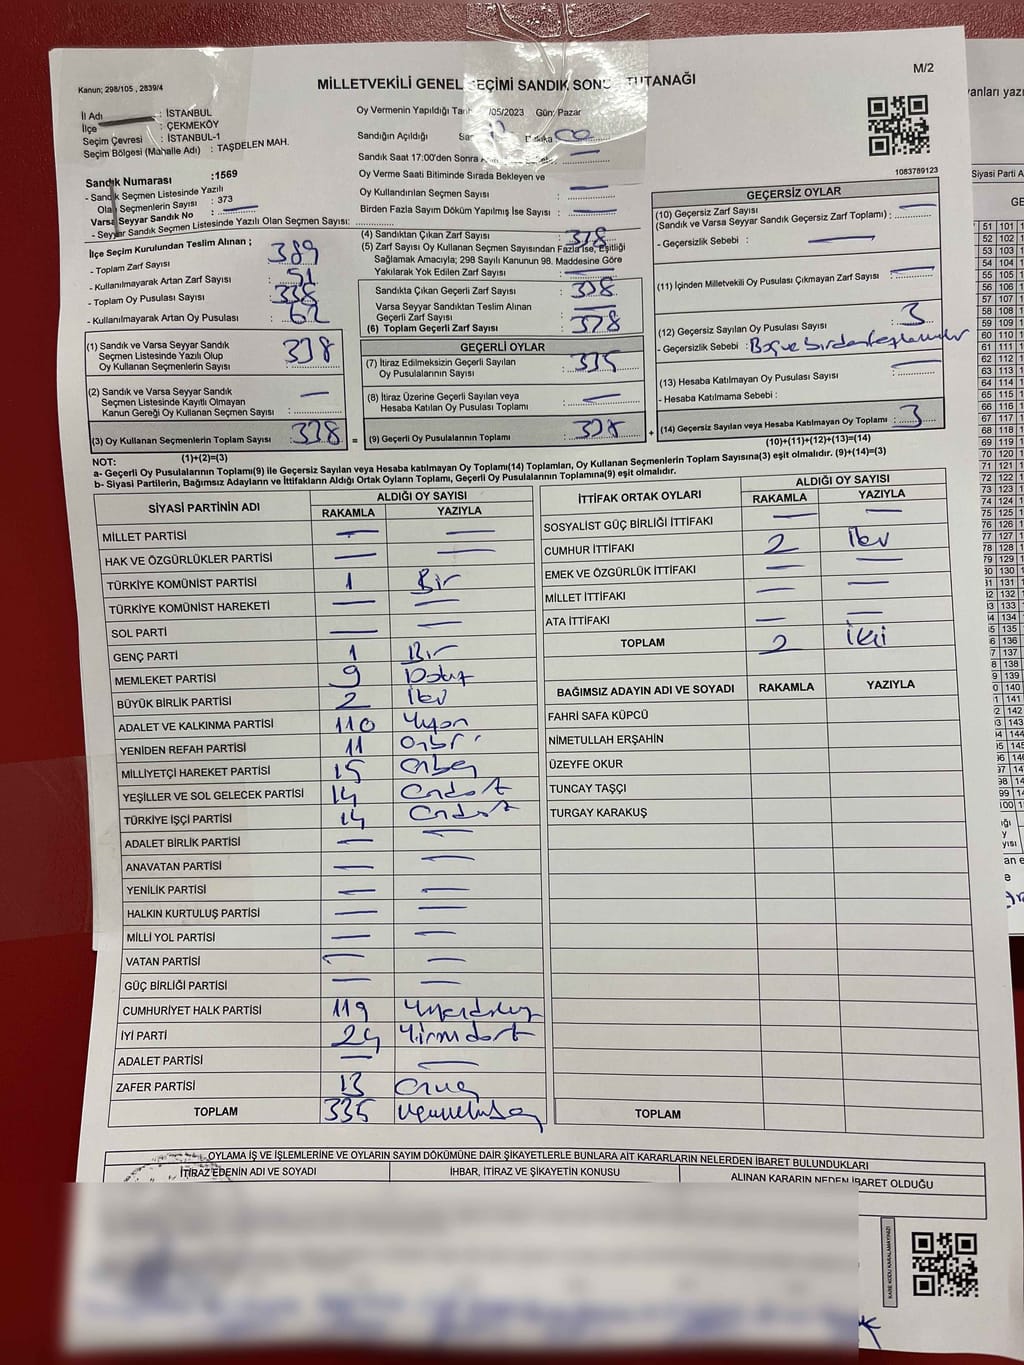 MİLLETVEKİLİ GENEL SEÇİMİ SANDIK SONUÇ TUTANAĞI
M/2
Kanun; 298/105 , 2839/4
İl Adı : İSTANBUL
İlçe : ÇEKMEKÖY
Seçim Çevresi : İSTANBUL-1
Seçim Bölgesi (Mahalle Adı) : TAŞDELEN MAH.
Sandık Numarası :1569
- Sandık Seçmen Listesinde Yazılı
Olan Seçmenlerin Sayısı : 373
Varsa Seyyar Sandık No : —
- Seyyar Sandık Seçmen Listesinde Yazılı Olan Seçmen Sayısı:
Oy Vermenin Yapıldığı Tari /05/2023 Gün: Pazar
Sandığın Açıldığı Saa Dakika 00
Sandık Saat 17:00'den Sonra —
Oy Verme Saati Bitiminde Sırada Bekleyen ve
Oy Kullandırılan Seçmen Sayısı : —
Birden Fazla Sayım Döküm Yapılmış İse Sayısı : —
1083789123
İlçe Seçim Kurulundan Teslim Alınan ;
- Toplam Zarf Sayısı : 389
- Kullanılmayarak Artan Zarf Sayısı : 51
- Toplam Oy Pusulası Sayısı : 338
- Kullanılmayarak Artan Oy Pusulası : 62
(1) Sandık ve Varsa Seyyar Sandık
Seçmen Listesinde Yazılı Olup
Oy Kullanan Seçmenlerin Sayısı : 338
(2) Sandık ve Varsa Seyyar Sandık
Seçmen Listesinde Kayıtlı Olmayan
Kanun Gereği Oy Kullanan Seçmen Sayısı : —
(3) Oy Kullanan Seçmenlerin Toplam Sayısı : 338
(1)+(2)=(3)
(4) Sandıktan Çıkan Zarf Sayısı : 338
(5) Zarf Sayısı Oy Kullanan Seçmen Sayısından Fazla İse, Eşitliği
Sağlamak Amacıyla; 298 Sayılı Kanunun 98. Maddesine Göre
Yakılarak Yok Edilen Zarf Sayısı : —
Sandıkta Çıkan Geçerli Zarf Sayısı : 338
Varsa Seyyar Sandıktan Teslim Alınan
Geçerli Zarf Sayısı : —
(6) Toplam Geçerli Zarf Sayısı : 338
GEÇERLİ OYLAR
(7) İtiraz Edilmeksizin Geçerli Sayılan
Oy Pusulalarının Sayısı : 335
(8) İtiraz Üzerine Geçerli Sayılan veya
Hesaba Katılan Oy Pusulası Toplamı : —
= (9) Geçerli Oy Pusulalarının Toplamı :
GEÇERSİZ OYLAR
(10) Geçersiz Zarf Sayısı
(Sandık ve Varsa Seyyar Sandık Geçersiz Zarf Toplamı) : —
- Geçersizlik Sebebi : —
(11) İçinden Milletvekili Oy Pusulası Çıkmayan Zarf Sayısı : —
(12) Geçersiz Sayılan Oy Pusulası Sayısı : 3
- Geçersizlik Sebebi : Boş ve birden
(13) Hesaba Katılmayan Oy Pusulası Sayısı : —
- Hesaba Katılmama Sebebi :
+ (14) Geçersiz Sayılan veya Hesaba Katılmayan Oy Toplamı : 3
(10)+(11)+(12)+(13)=(14)
NOT:
a- Geçerli Oy Pusulalarının Toplamı(9) ile Geçersiz Sayılan veya Hesaba katılmayan Oy Toplamı(14) Toplamları, Oy Kullanan Seçmenlerin Toplam Sayısına(3) eşit olmalıdır. (9)+(14)=(3)
b- Siyasi Partilerin, Bağımsız Adayların ve İttifakların Aldığı Ortak Oyların Toplamı, Geçerli Oy Pusulalarının Toplamına(9) eşit olmalıdır.
SİYASİ PARTİNİN ADI ALDIĞI OY SAYISI
RAKAMLA YAZIYLA
MİLLET PARTİSİ — —
HAK VE ÖZGÜRLÜKLER PARTİSİ — —
TÜRKİYE KOMÜNİST PARTİSİ 1 Bir
TÜRKİYE KOMÜNİST HAREKETİ — —
SOL PARTİ — —
GENÇ PARTİ 1 Bir
MEMLEKET PARTİSİ 9 Dokuz
BÜYÜK BİRLİK PARTİSİ 2 İki
ADALET VE KALKINMA PARTİSİ 110 Yüzon
YENİDEN REFAH PARTİSİ 11 Onbir
MİLLİYETÇİ HAREKET PARTİSİ 15 Onbeş
YEŞİLLER VE SOL GELECEK PARTİSİ 14 Ondört
TÜRKİYE İŞÇİ PARTİSİ 14 Ondört
ADALET BİRLİK PARTİSİ — —
ANAVATAN PARTİSİ — —
YENİLİK PARTİSİ — —
HALKIN KURTULUŞ PARTİSİ — —
MİLLİ YOL PARTİSİ — —
VATAN PARTİSİ — —
GÜÇ BİRLİĞİ PARTİSİ — —
CUMHURİYET HALK PARTİSİ 119 Yüzondokuz
İYİ PARTİ 24 Yirmidört
ADALET PARTİSİ — —
ZAFER PARTİSİ 13 Onüç
TOPLAM 335 Üçyüzotuzbeş
İTTİFAK ORTAK OYLARI ALDIĞI OY SAYISI
RAKAMLA YAZIYLA
SOSYALİST GÜÇ BİRLİĞİ İTTİFAKI — —
CUMHUR İTTİFAKI 2 İki
EMEK VE ÖZGÜRLÜK İTTİFAKI — —
MİLLET İTTİFAKI — —
ATA İTTİFAKI — —
TOPLAM 2 İki
BAĞIMSIZ ADAYIN ADI VE SOYADI RAKAMLA YAZIYLA
FAHRİ SAFA KÜPCÜ
NİMETULLAH ERŞAHİN
ÜZEYFE OKUR
TUNCAY TAŞÇI
TURGAY KARAKUŞ
TOPLAM
OYLAMA İŞ VE İŞLEMLERİNE VE OYLARIN SAYIM DÖKÜMÜNE DAİR ŞİKAYETLERLE BUNLARA AİT KARARLARIN NELERDEN İBARET BULUNDUKLARI
İTİRAZ EDENİN ADI VE SOYADI İHBAR, İTİRAZ VE ŞİKAYETİN KONUSU ALINAN KARARIN NEDEN İBARET OLDUĞU
KARE KODU KARALAMAYINIZ!